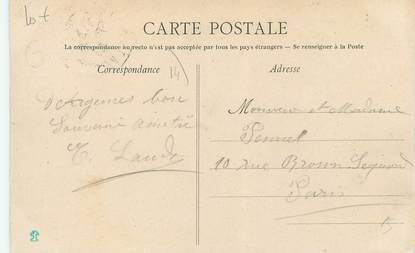 CARTE POSTALE
La correspondance au recto n'est pas acceptée par tous les pays étrangers — Se renseigner à la Poste
Correspondance
Adresse
d'Argences bon
Souvenir amitié
Monsieur et Madame
10 rue Brown Séquard
Paris